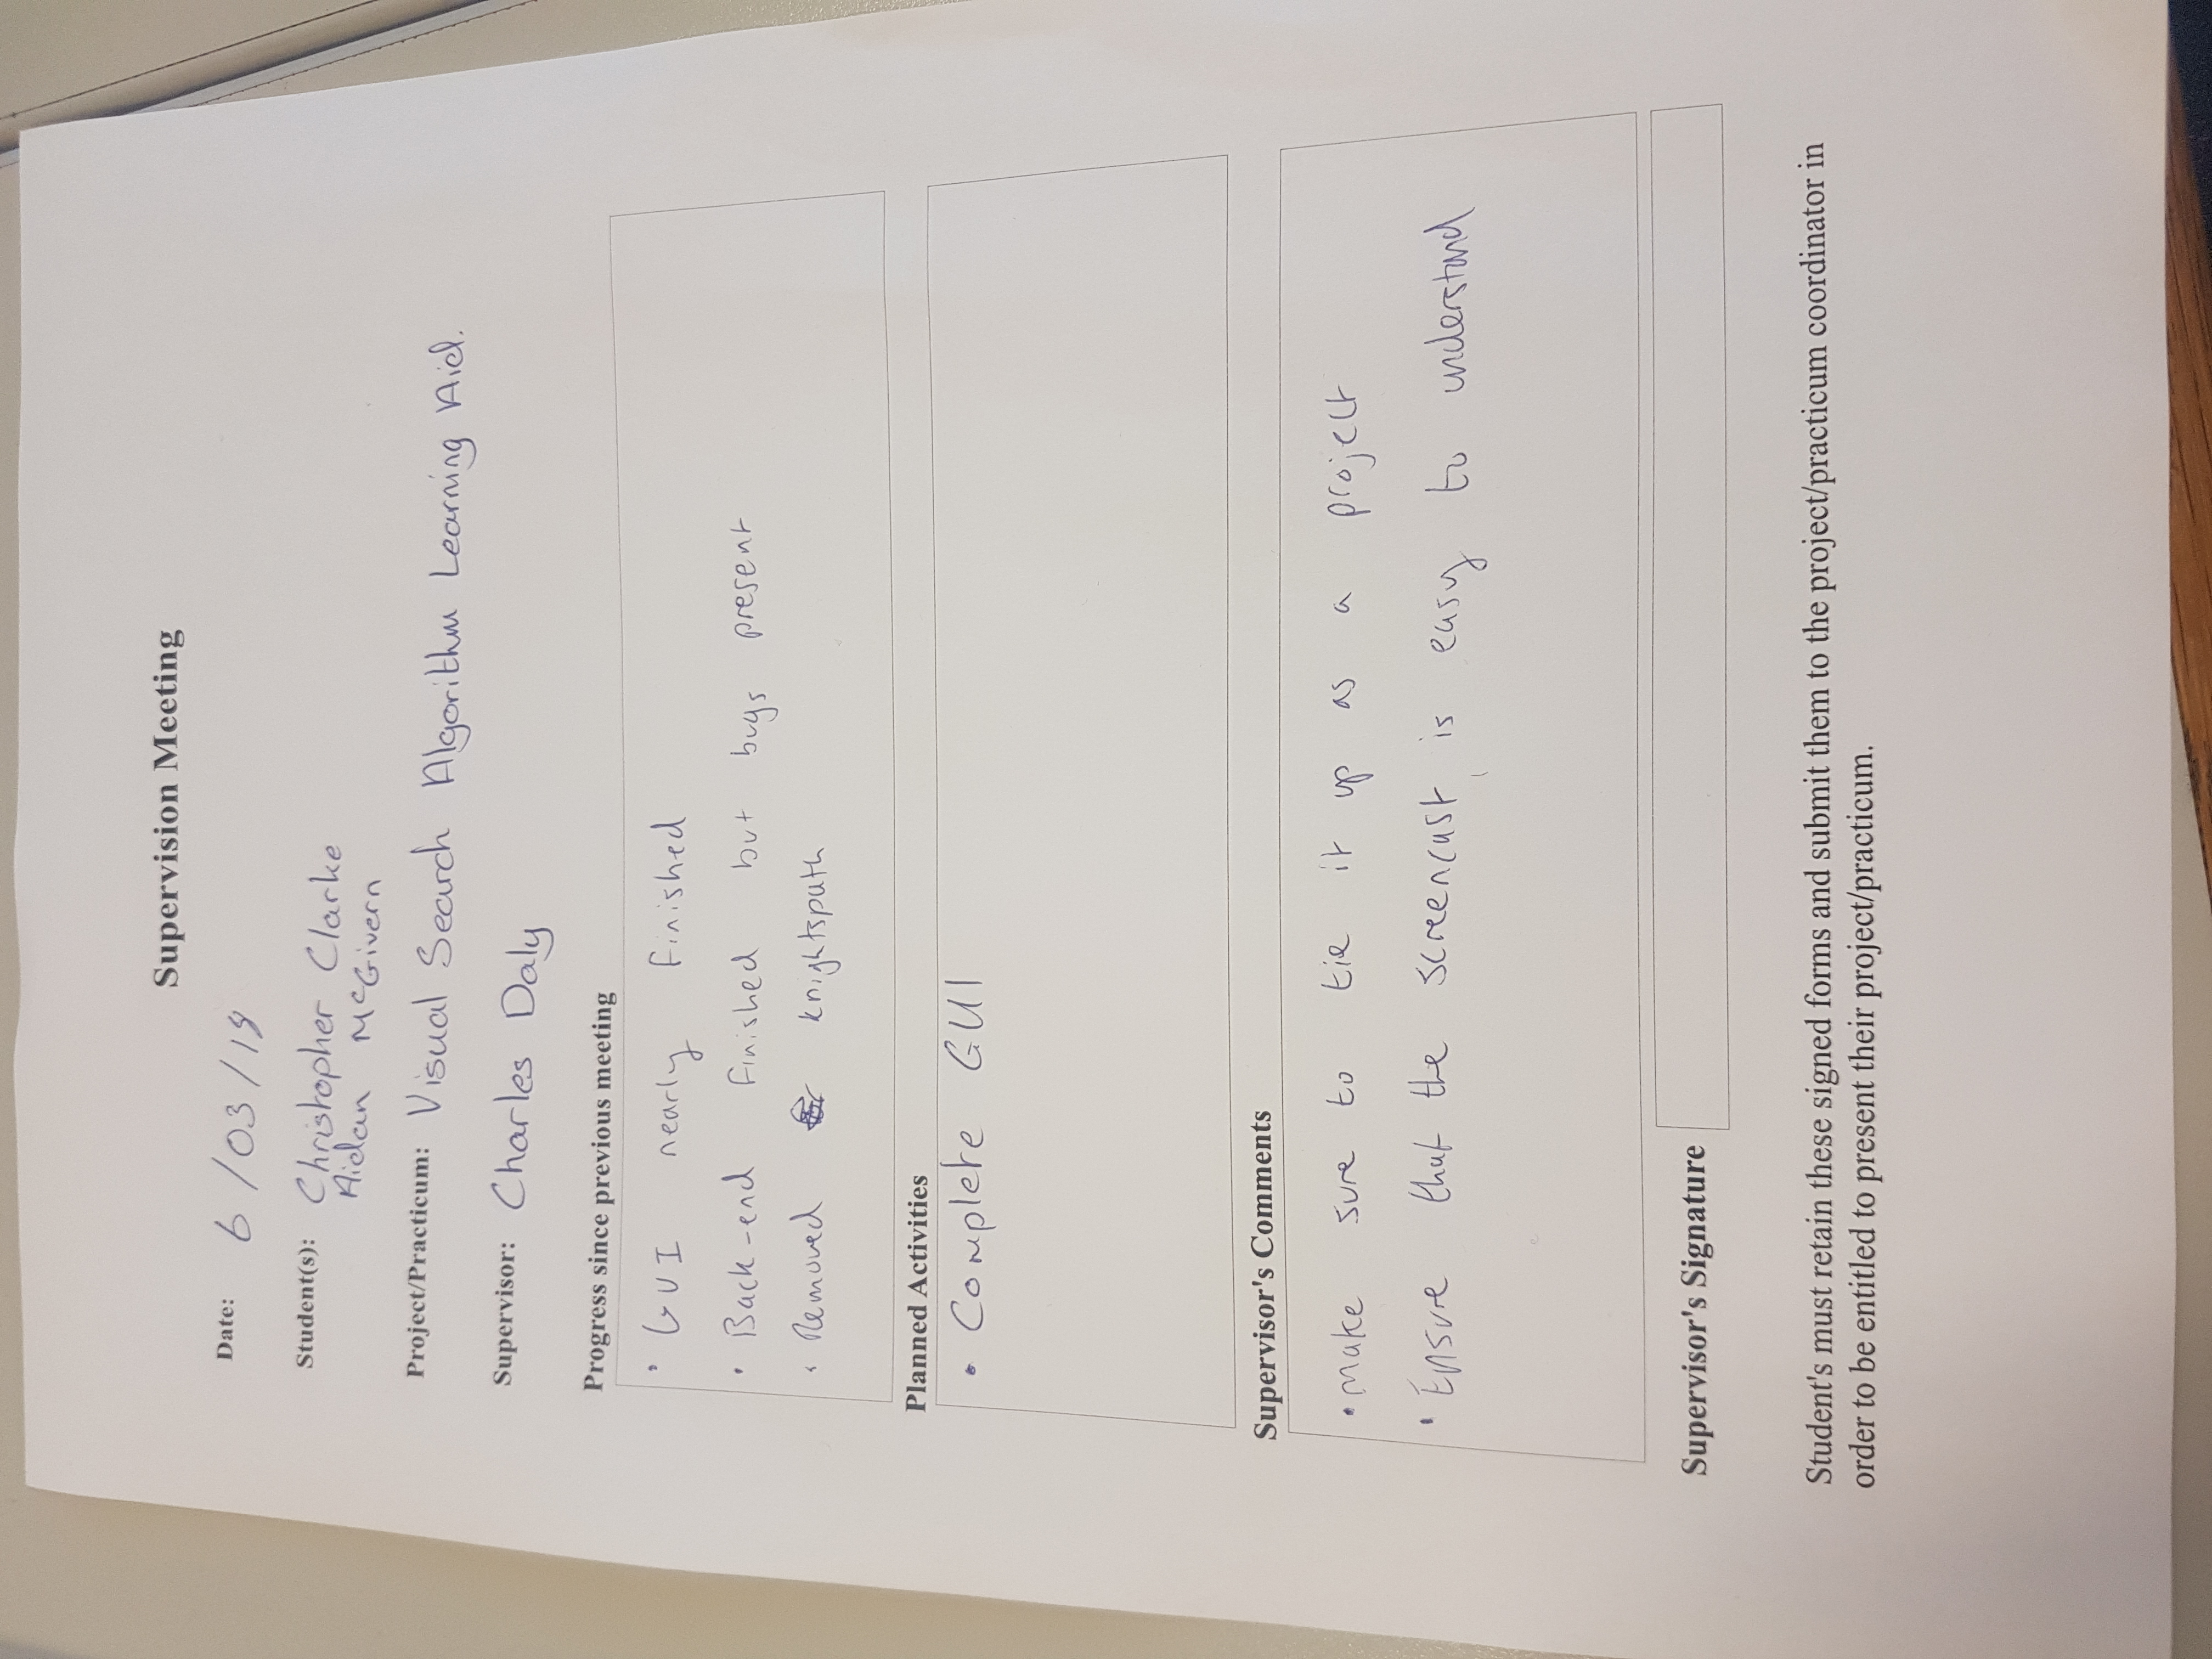 Supervision Meeting
Date: 6/03/18
Student(s): Christopher Clarke
Aidan McGivern
Project/Practicum: Visual Search Algorithm Learning Aid.
Supervisor: Charles Daly
Progress since previous meeting
• GUI nearly finished
• Back-end finished but bugs present
• Removed knightspath
Planned Activities
• Complete GUI
Supervisor's Comments
• make sure to tie it up as a project
• Ensure that the screencast is easy to understand
Supervisor's Signature
Student's must retain these signed forms and submit them to the project/practicum coordinator in
order to be entitled to present their project/practicum.